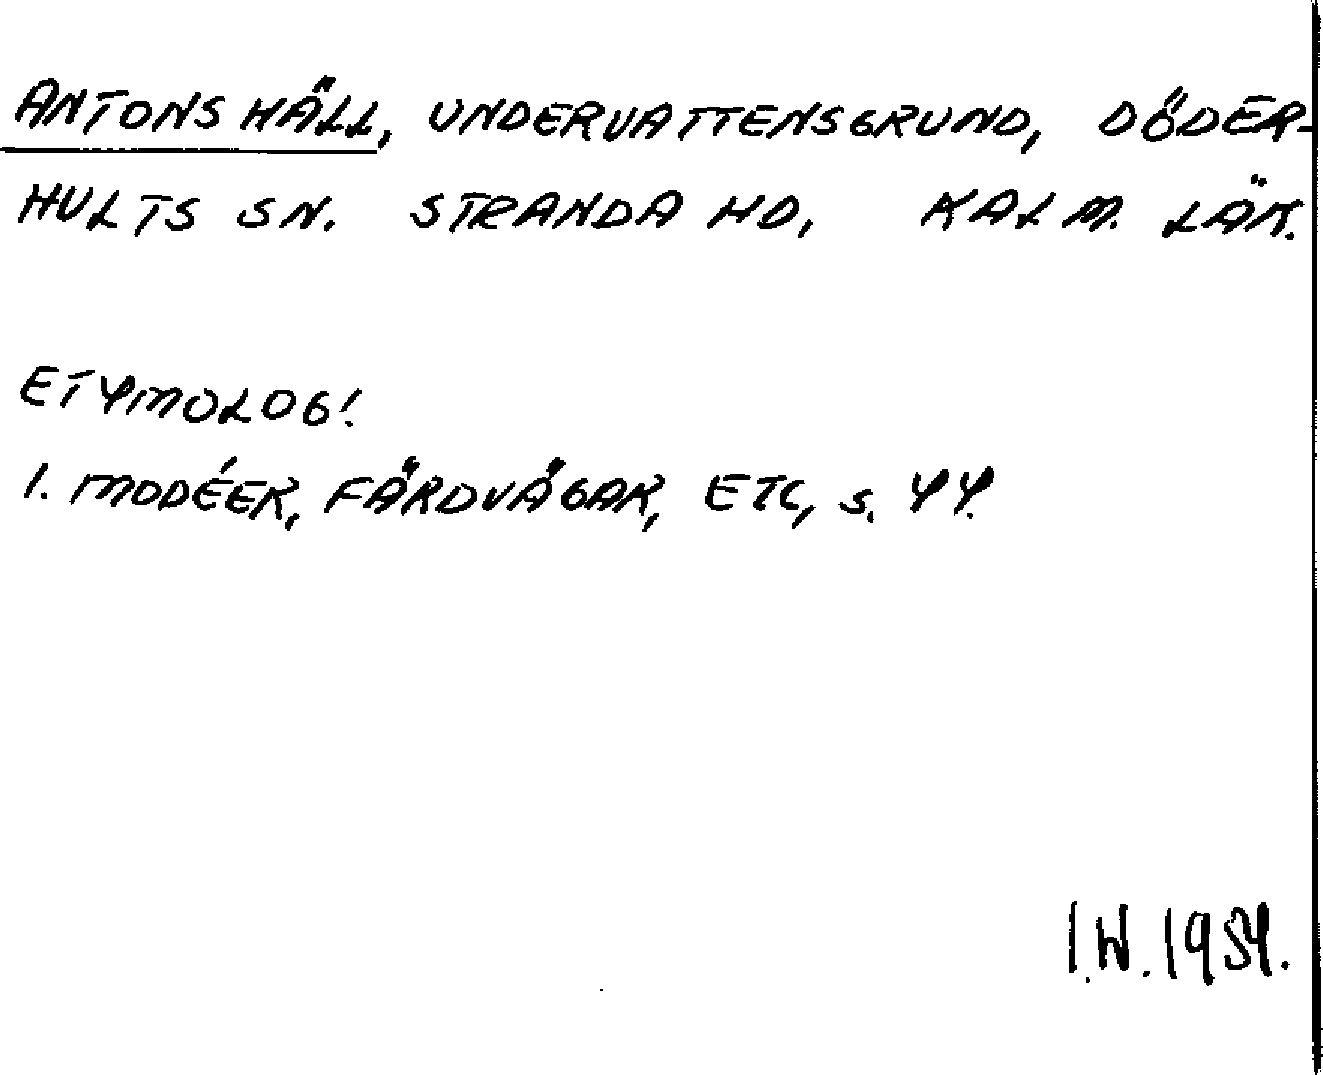 ANTONS HÄLL, UNDERVATTENSGRUND, DÖDER-
HULTS SN. STRANDA HD, KALM. LÄN.
ETYMOLOG!
1. MODÉER, FÄRDVÄGAR, ETC, S. 44.
I.W. 1954.